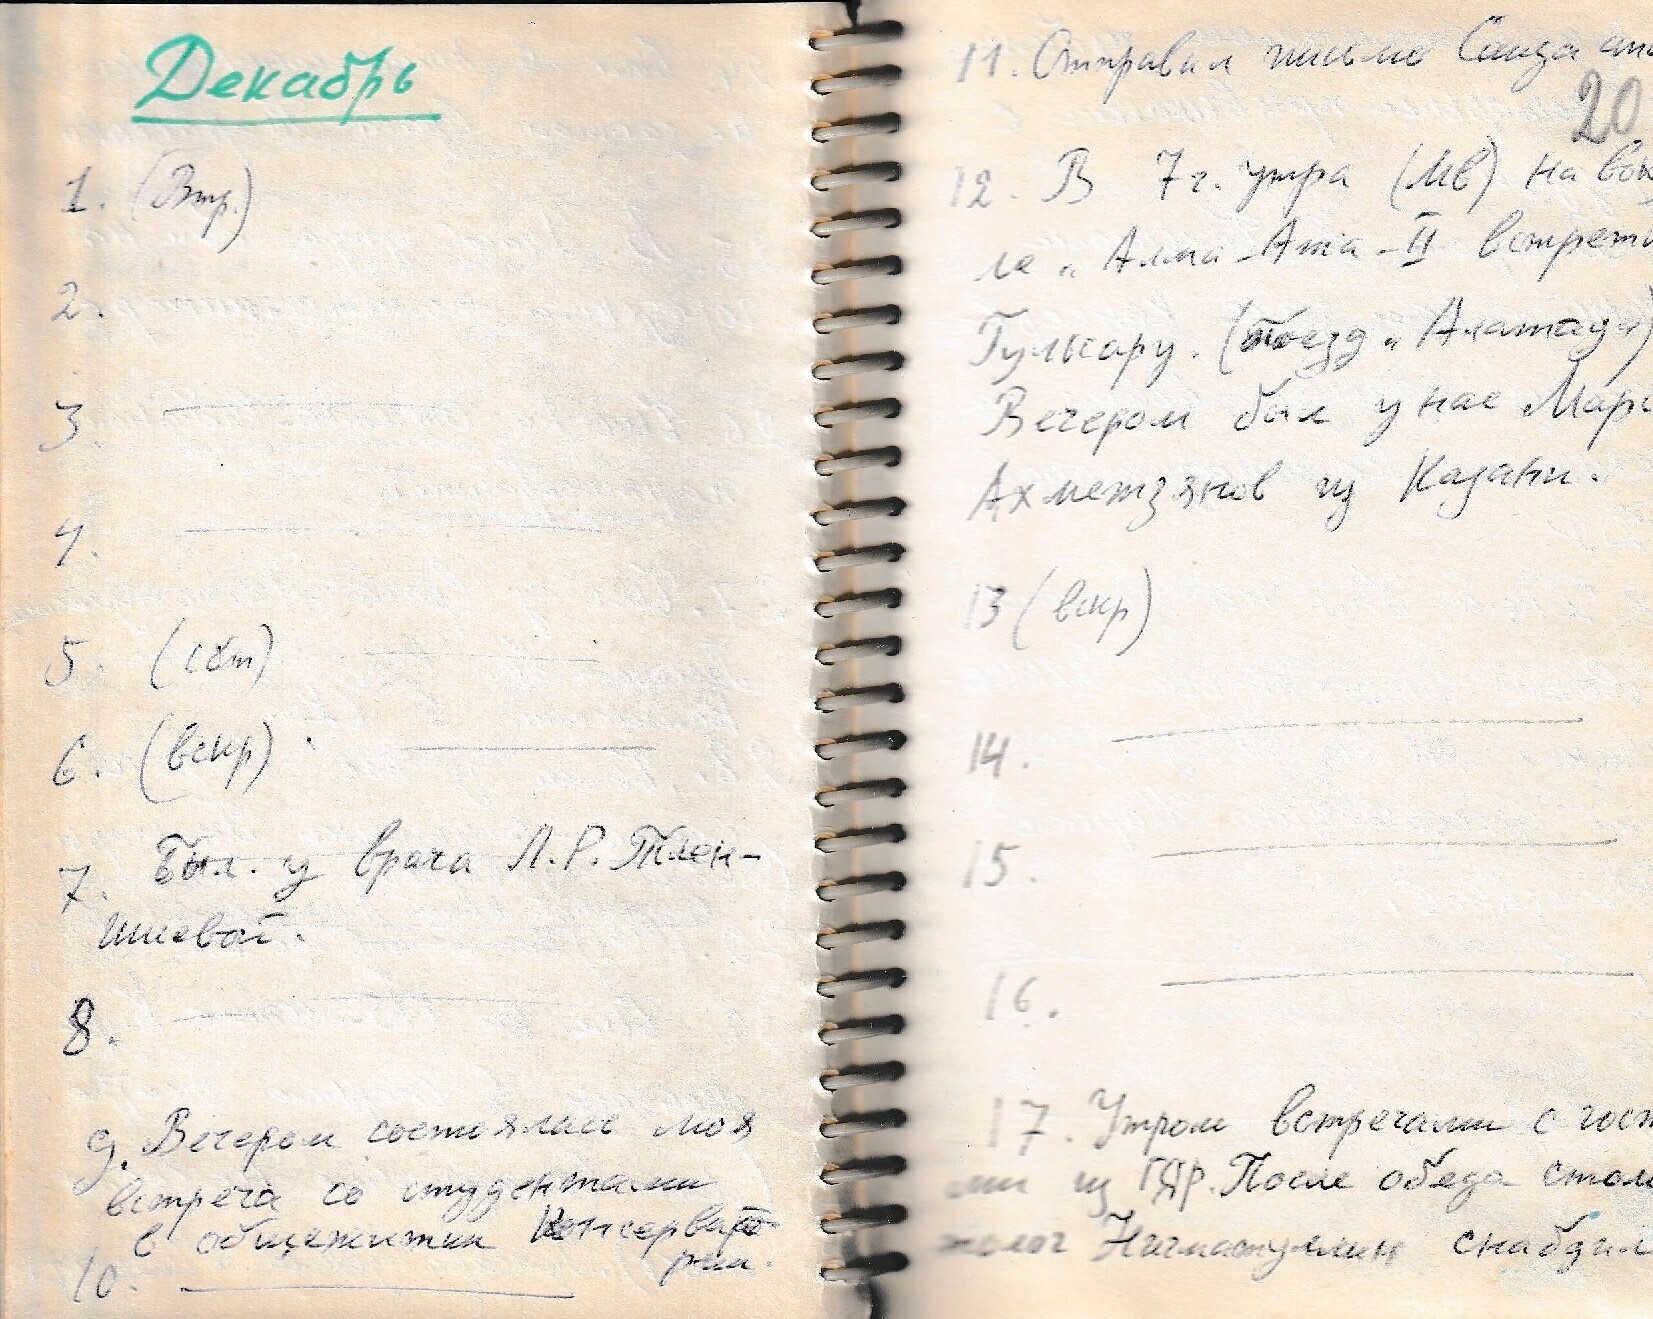 Декабрь
1. (Втр.)
2.
3.
4.
5. (сбт)
6. (вскр).
7. Был у врача Л.Р. Тлен-
шиевой.
8.
9. Вечером состоялась моя
встреча со студентами
в общежитии Консервато-
рии.
10.
11. Отправил письмо Саида
20
12. В 7 г. утра (Мв) на вок
ле „Алма-Ата-II встрети
Гульсару. (Поезд „Алатау“)
Вечером был у нас Мар
Ахметзянов из Казани.
13 (вскр)
14.
15.
16.
17. Утром встречами с гост
ми из ГДР. После обеда стом
толог Нигматуллин снабдил